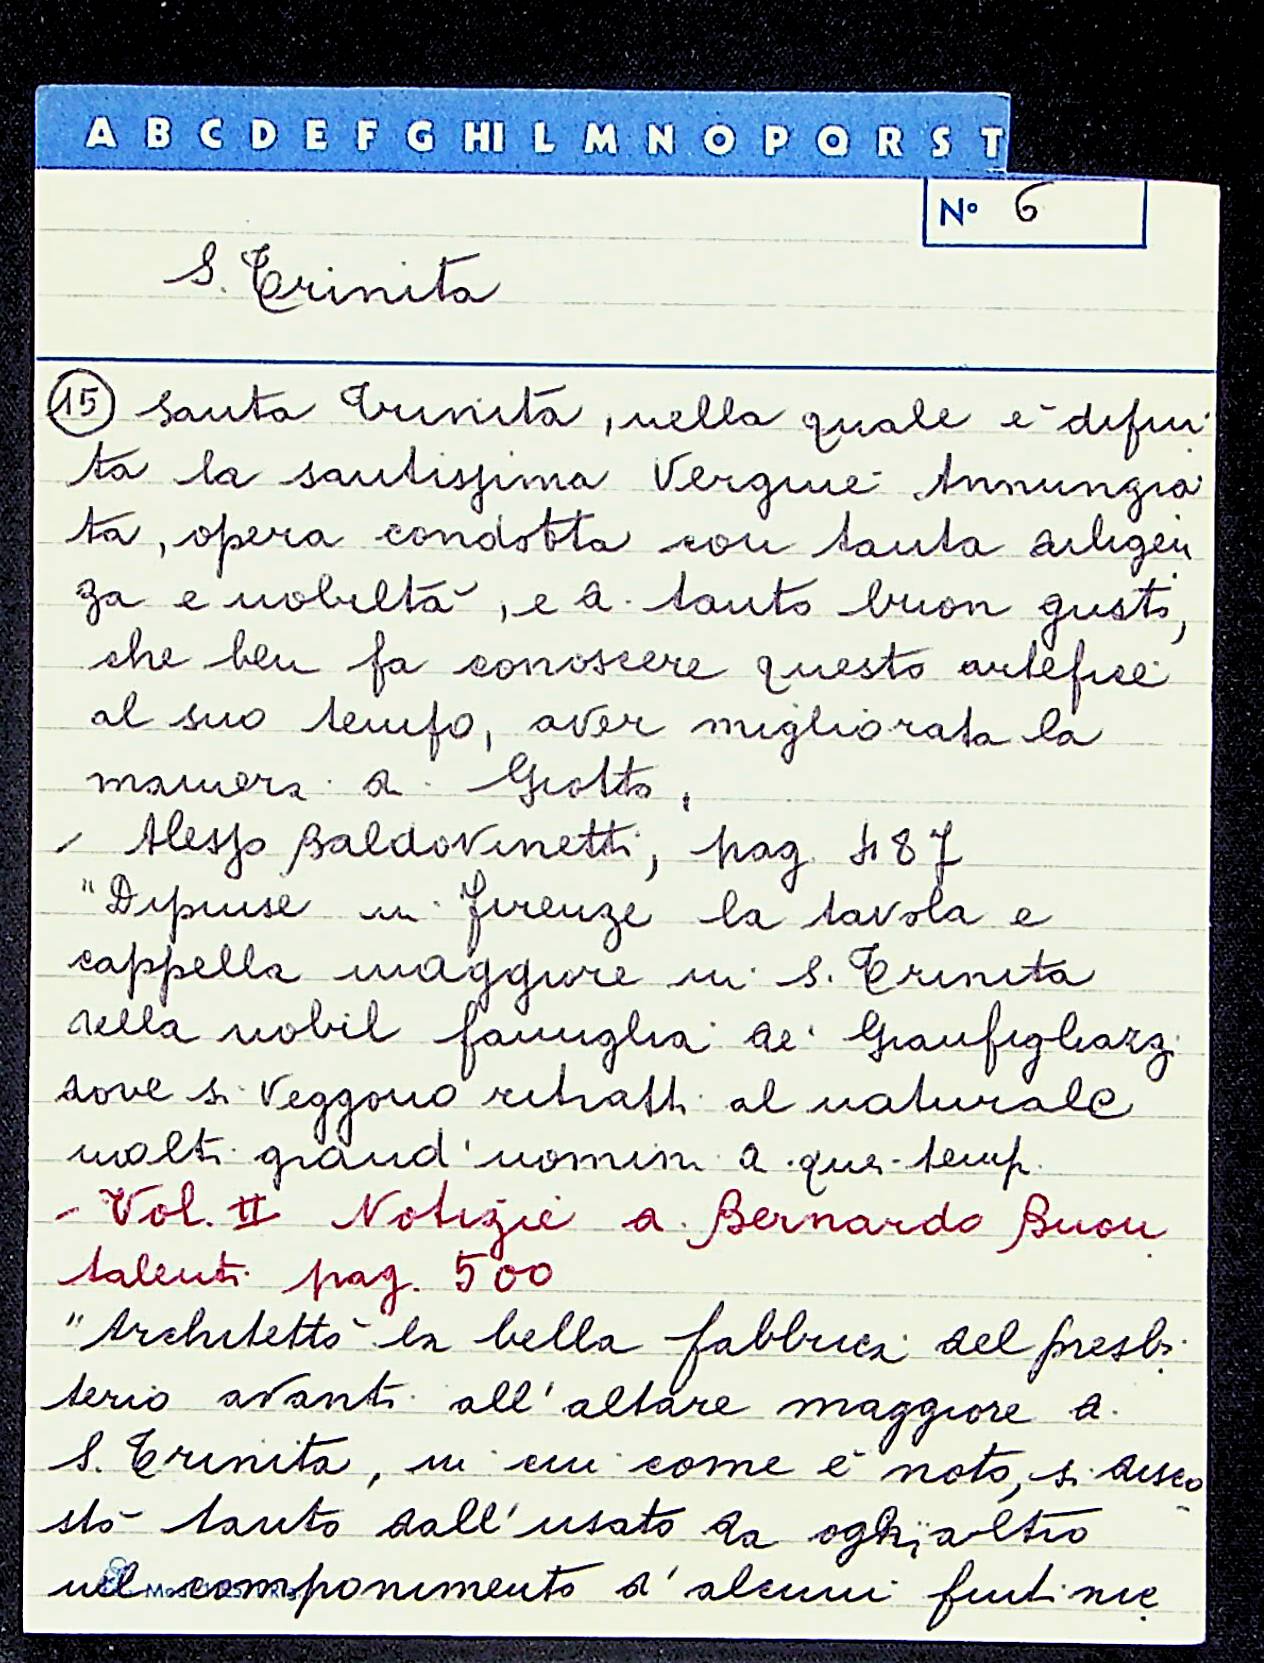 A B C D E F G HI L M N O P Q R S T
N° 6
S. Trinita
15 Santa Trinita, nella quale è dipin
ta la santissima Vergine Annunzia
ta, opera condotta con tanta diligen
za e nobiltà, e di tanto buon gusto,
che ben fa conoscere questo artefice
al suo tempo, aver migliorata la
maniera di Giotto.
- Alesso Baldovinetti, pag. 487
"Dipinse in Firenze la tavola e
cappella maggiore in S. Trinita
della nobil famiglia de' Gianfigliazzi
dove si veggono ritratti al naturale
molti grand'uomini di que' tempi.
- Vol. II Notizie di Bernardo Buon
talenti pag. 500
"Architettò la bella fabbrica del presbi
terio avanti all'altare maggiore di
S. Trinita, in cui come è noto, si disco
stò tanto dall'usato da ogni altro
nel componimento d'alcuni finti